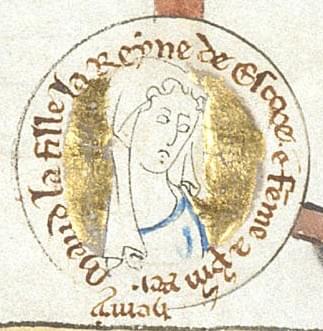 Maud la fille la Reyne de Escoce. e feme a
rei.
henry